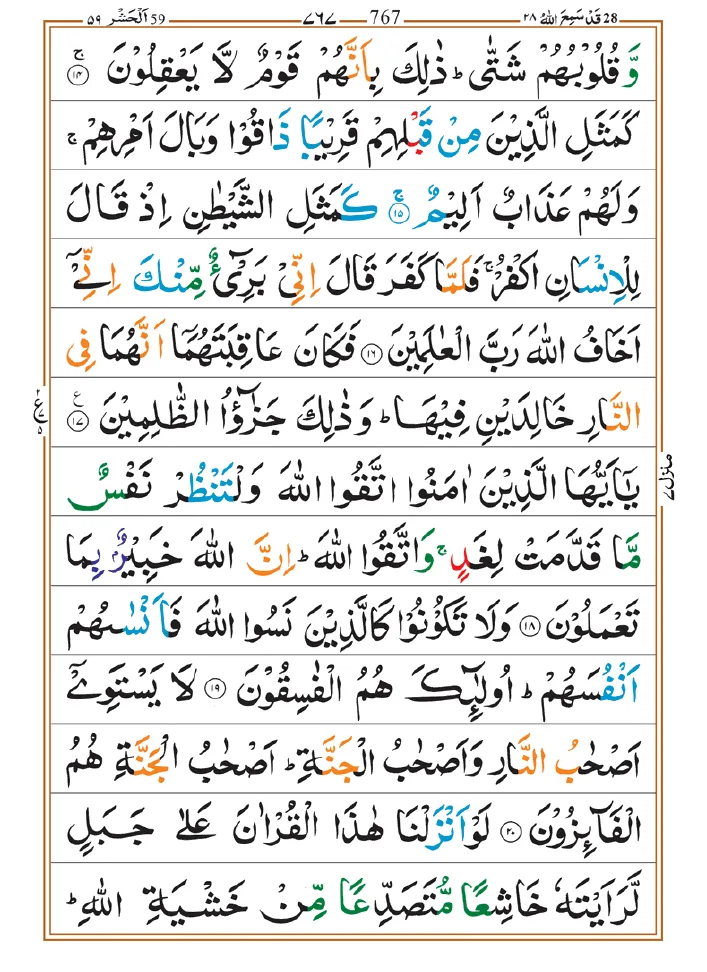 28 قَدْ سَمِعَ اللهُ ٢٨ 767 ٧٦٧ 59 اَلْحَشْر ٥٩
وَّ قُلُوْبُهُمْ شَتّٰى ؕ ذٰلِكَ بِاَنَّهُمْ قَوْمٌ لَّا يَعْقِلُوْنَ ۚ ﴿۱۴﴾
كَمَثَلِ الَّذِيْنَ مِنْ قَبْلِهِمْ قَرِيْبًا ذَاقُوْا وَبَالَ اَمْرِهِمْ ۚ
وَلَهُمْ عَذَابٌ اَلِيْمٌ ۚ ﴿۱۵﴾ كَمَثَلِ الشَّيْطٰنِ اِذْ قَالَ
لِلْاِنْسَانِ اكْفُرْ ۚ فَلَمَّا كَفَرَ قَالَ اِنِّيْ بَرِيْٓءٌ مِّنْكَ اِنِّيْۤ
اَخَافُ اللهَ رَبَّ الْعٰلَمِيْنَ ﴿۱۶﴾ فَكَانَ عَاقِبَتَهُمَاۤ اَنَّهُمَا فِي
النَّارِ خَالِدَيْنِ فِيْهَا ؕ وَذٰلِكَ جَزٰٓؤُا الظّٰلِمِيْنَ ﴿۱۷﴾ ع
يٰۤاَيُّهَا الَّذِيْنَ اٰمَنُوا اتَّقُوا اللهَ وَلْتَنْظُرْ نَفْسٌ
مَّا قَدَّمَتْ لِغَدٍ ۚ وَاتَّقُوا اللهَ ؕ اِنَّ اللهَ خَبِيْرٌۢ بِمَا
تَعْمَلُوْنَ ﴿۱۸﴾ وَلَا تَكُوْنُوْا كَالَّذِيْنَ نَسُوا اللهَ فَاَنْسٰىهُمْ
اَنْفُسَهُمْ ؕ اُولٰٓئِكَ هُمُ الْفٰسِقُوْنَ ﴿۱۹﴾ لَا يَسْتَوِيْۤ
اَصْحٰبُ النَّارِ وَاَصْحٰبُ الْجَنَّةِ ؕ اَصْحٰبُ الْجَنَّةِ هُمُ
الْفَآئِزُوْنَ ﴿۲۰﴾ لَوْ اَنْزَلْنَا هٰذَا الْقُرْاٰنَ عَلٰى جَبَلٍ
لَّرَاَيْتَهٗ خَاشِعًا مُّتَصَدِّعًا مِّنْ خَشْيَةِ اللهِ ؕ
منزل ٧